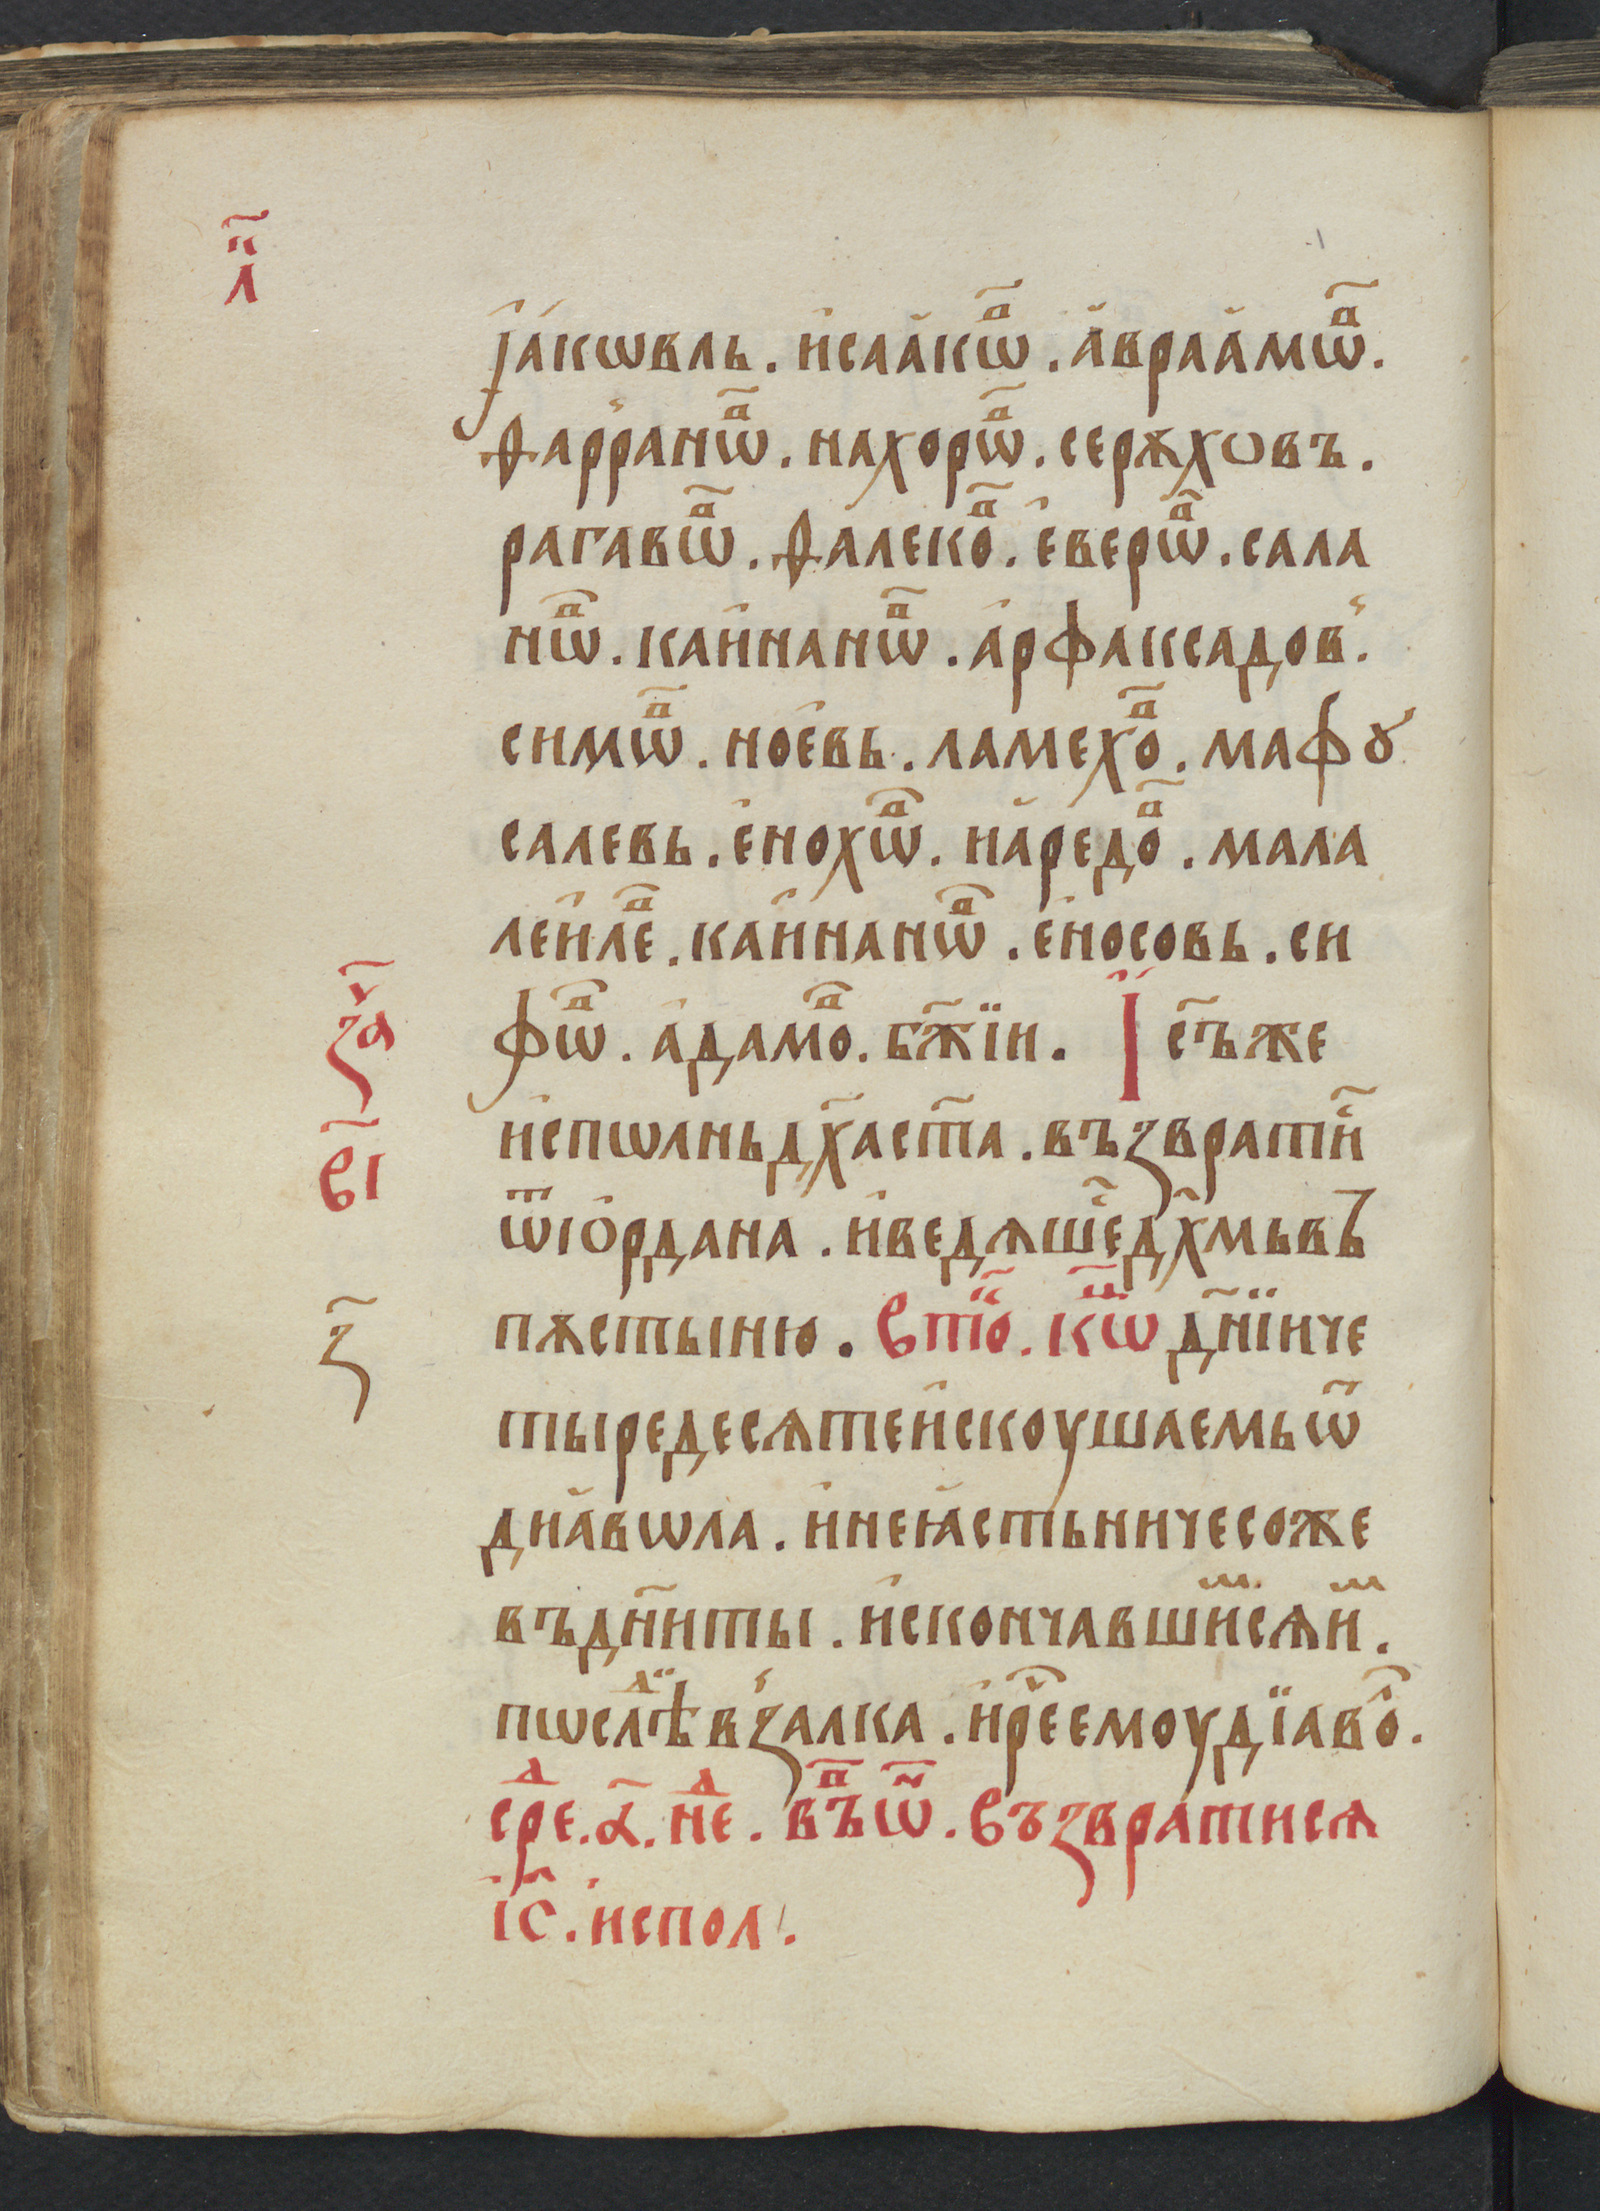 л҃к
ꙗ҆́кѡвль . и҆саа҆кѡⷡ҇ . а҆враа҆мѡⷡ҇ .
ѳарранѡⷡ҇ . нахорѡⷡ҇ . серѫховъ .
рагавѡⷡ҇ . ѳалекоⷡ҇ . е҆верѡⷡ҇ . сала
нѡⷡ҇ . каи҆нанѡⷡ҇ . а҆рфаксадов .
симѡⷡ҇ . ное҆вь . ламехоⷡ҇ . мафꙋ
салевь . е҆нохѡⷡ҇ . и҆а҆редоⷡ҇ . мала
леи҆леⷡ҇ . каи҆нанѡⷡ҇ . е҆носовь . си
фѡⷡ҇ . а҆дамоⷡ҇ . бж҃їи . І с҃ъже
и҆спѡлньдх҃аст҃а . възврати҆
ѿіо҆рдана . и҆ведѧшеⷭ҇дх҃мьвъ
пѫстыню . Вт҃о . к҃ѡ дн҃їиче
тыредесѧтеи҆скоушаемьѿ
диа҆вѡла . и҆неꙗ҆стьничесоже
въдн҃иты . и҆скончавшиⷨсѧиⷨ .
пѡслⷣѣвзалка . и҆рⷱ҇еемоудїавоⷧ .
среⷣ . а҃ . неⷣ . въⷡ҇ѡ҃ . Възвратисѧ
і҆с҃ . и҆спол .
за҃ч
в҃і
з҃